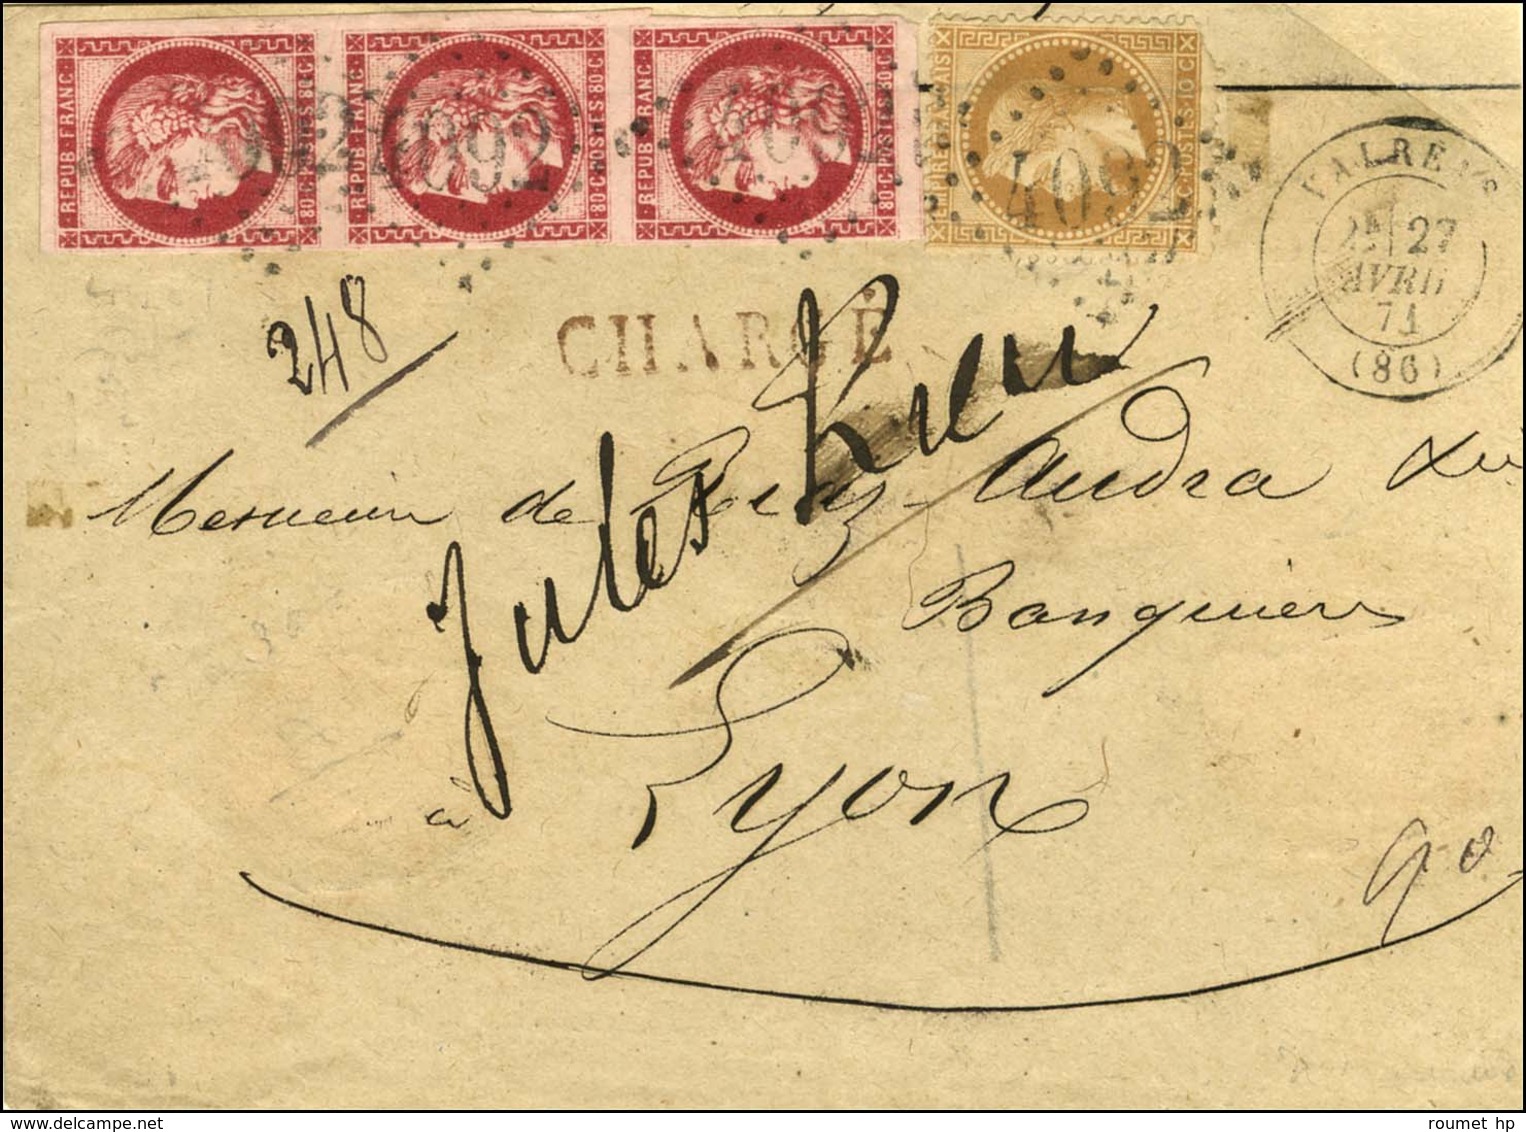 REPUB. FRANC. 80·C·POSTES 80·C· REPUB. FRANC. 80·C·POSTES 80·C· REPUB. FRANC. 80·C·POSTES 80·C·
4092 4092 4092
VALREAS
2E 27
AVRIL
71
(86)
248
CHARGÉ
Messieurs de Riaz Audra
Jules
Banquiers
à Lyon
90
roumet hp